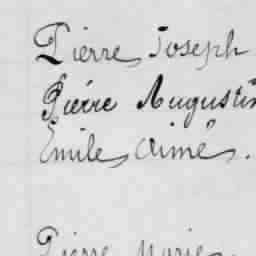 Pierre Joseph
Pierre Augustin
Emile Aimé.
Pierre Marie